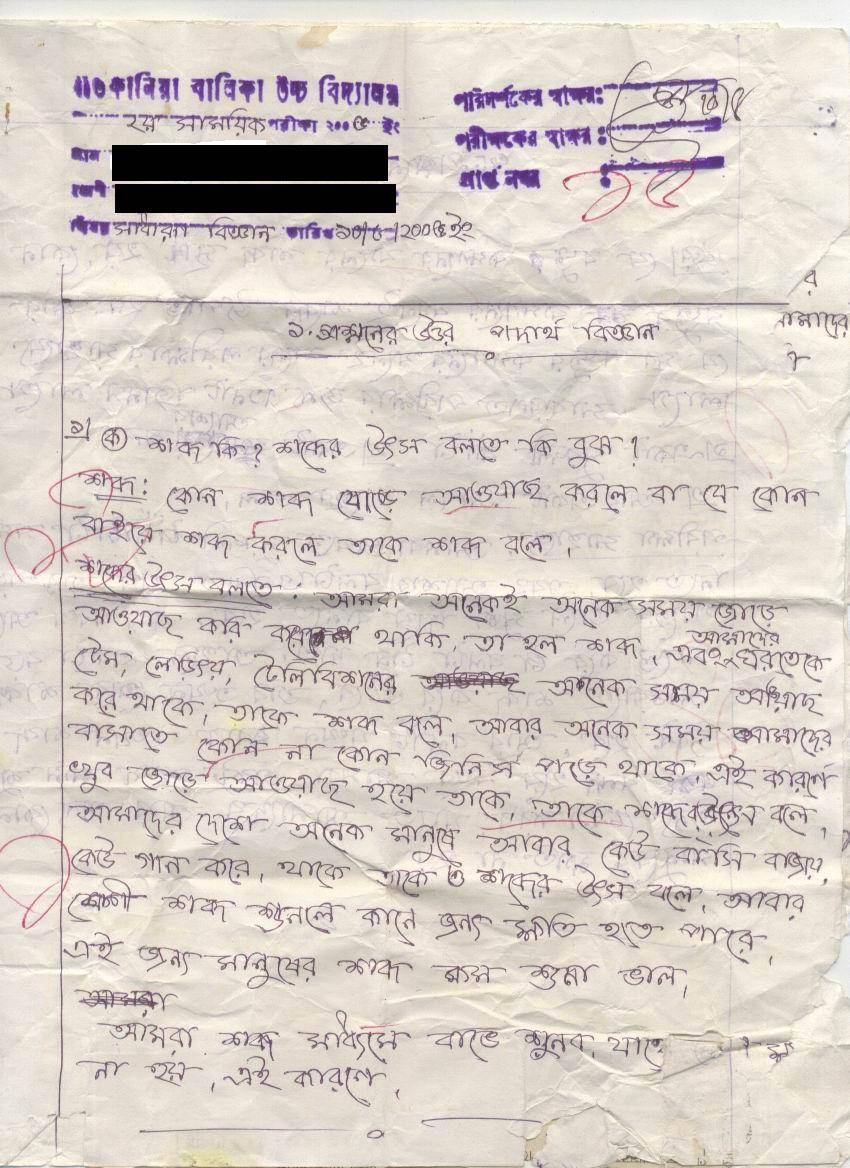 কানিয়া বালিকা উচ্চ বিদ্যালয়
২য় সাময়িক পরীক্ষা ২০০৫ ইং
নাম
শ্রেণী
বিষয় সাধারন বিজ্ঞান তারিখ ২০০৫ইং
পরিদর্শকের স্বাক্ষর:
পরীক্ষকের স্বাক্ষর:
প্রাপ্ত নম্বর
র
১. প্রশ্নের উত্তর পদার্থ বিজ্ঞান
১। ক শব্দ কি? শব্দের উৎস বলতে কি বুঝ?
শব্দ: কোন শব্দ যোড়ে আওয়াজ করলে বা যে কোন
বাইরে শব্দ করলে তাকে শব্দ বলে।
শব্দের উৎস বলতে: আমরা অনেকই অনেক সময় জোড়ে
আওয়াজ করি থাকি, তা হল শব্দ, এবং আমাদের
টেলিবিশনের অনেক সময় আওয়াজ
করে থাকে, তাকে শব্দ বলে, আবার অনেক সময় আমাদের
বাসাতে কোন না কোন জিনিস পড়ে থাকে, এই কারণে
খুব জোড়ে আওয়াজ হয়ে তাকে, তাকে শব্দের উৎস বলে,
আমাদের দেশে অনেক মানুষে আবার কেউ বাসি বাজায়,
কেউ গান করে, থাকে তাকে ও শব্দের উৎস বলে, আবার
বেশী শব্দ শুনলে কানে জন্য ক্ষতি হতে পারে,
এই জন্য মানুষের শব্দ কম শুনা ভাল,
আমরা শব্দ মাধ্যমে শুনব,
না হয়, এই কারণে,